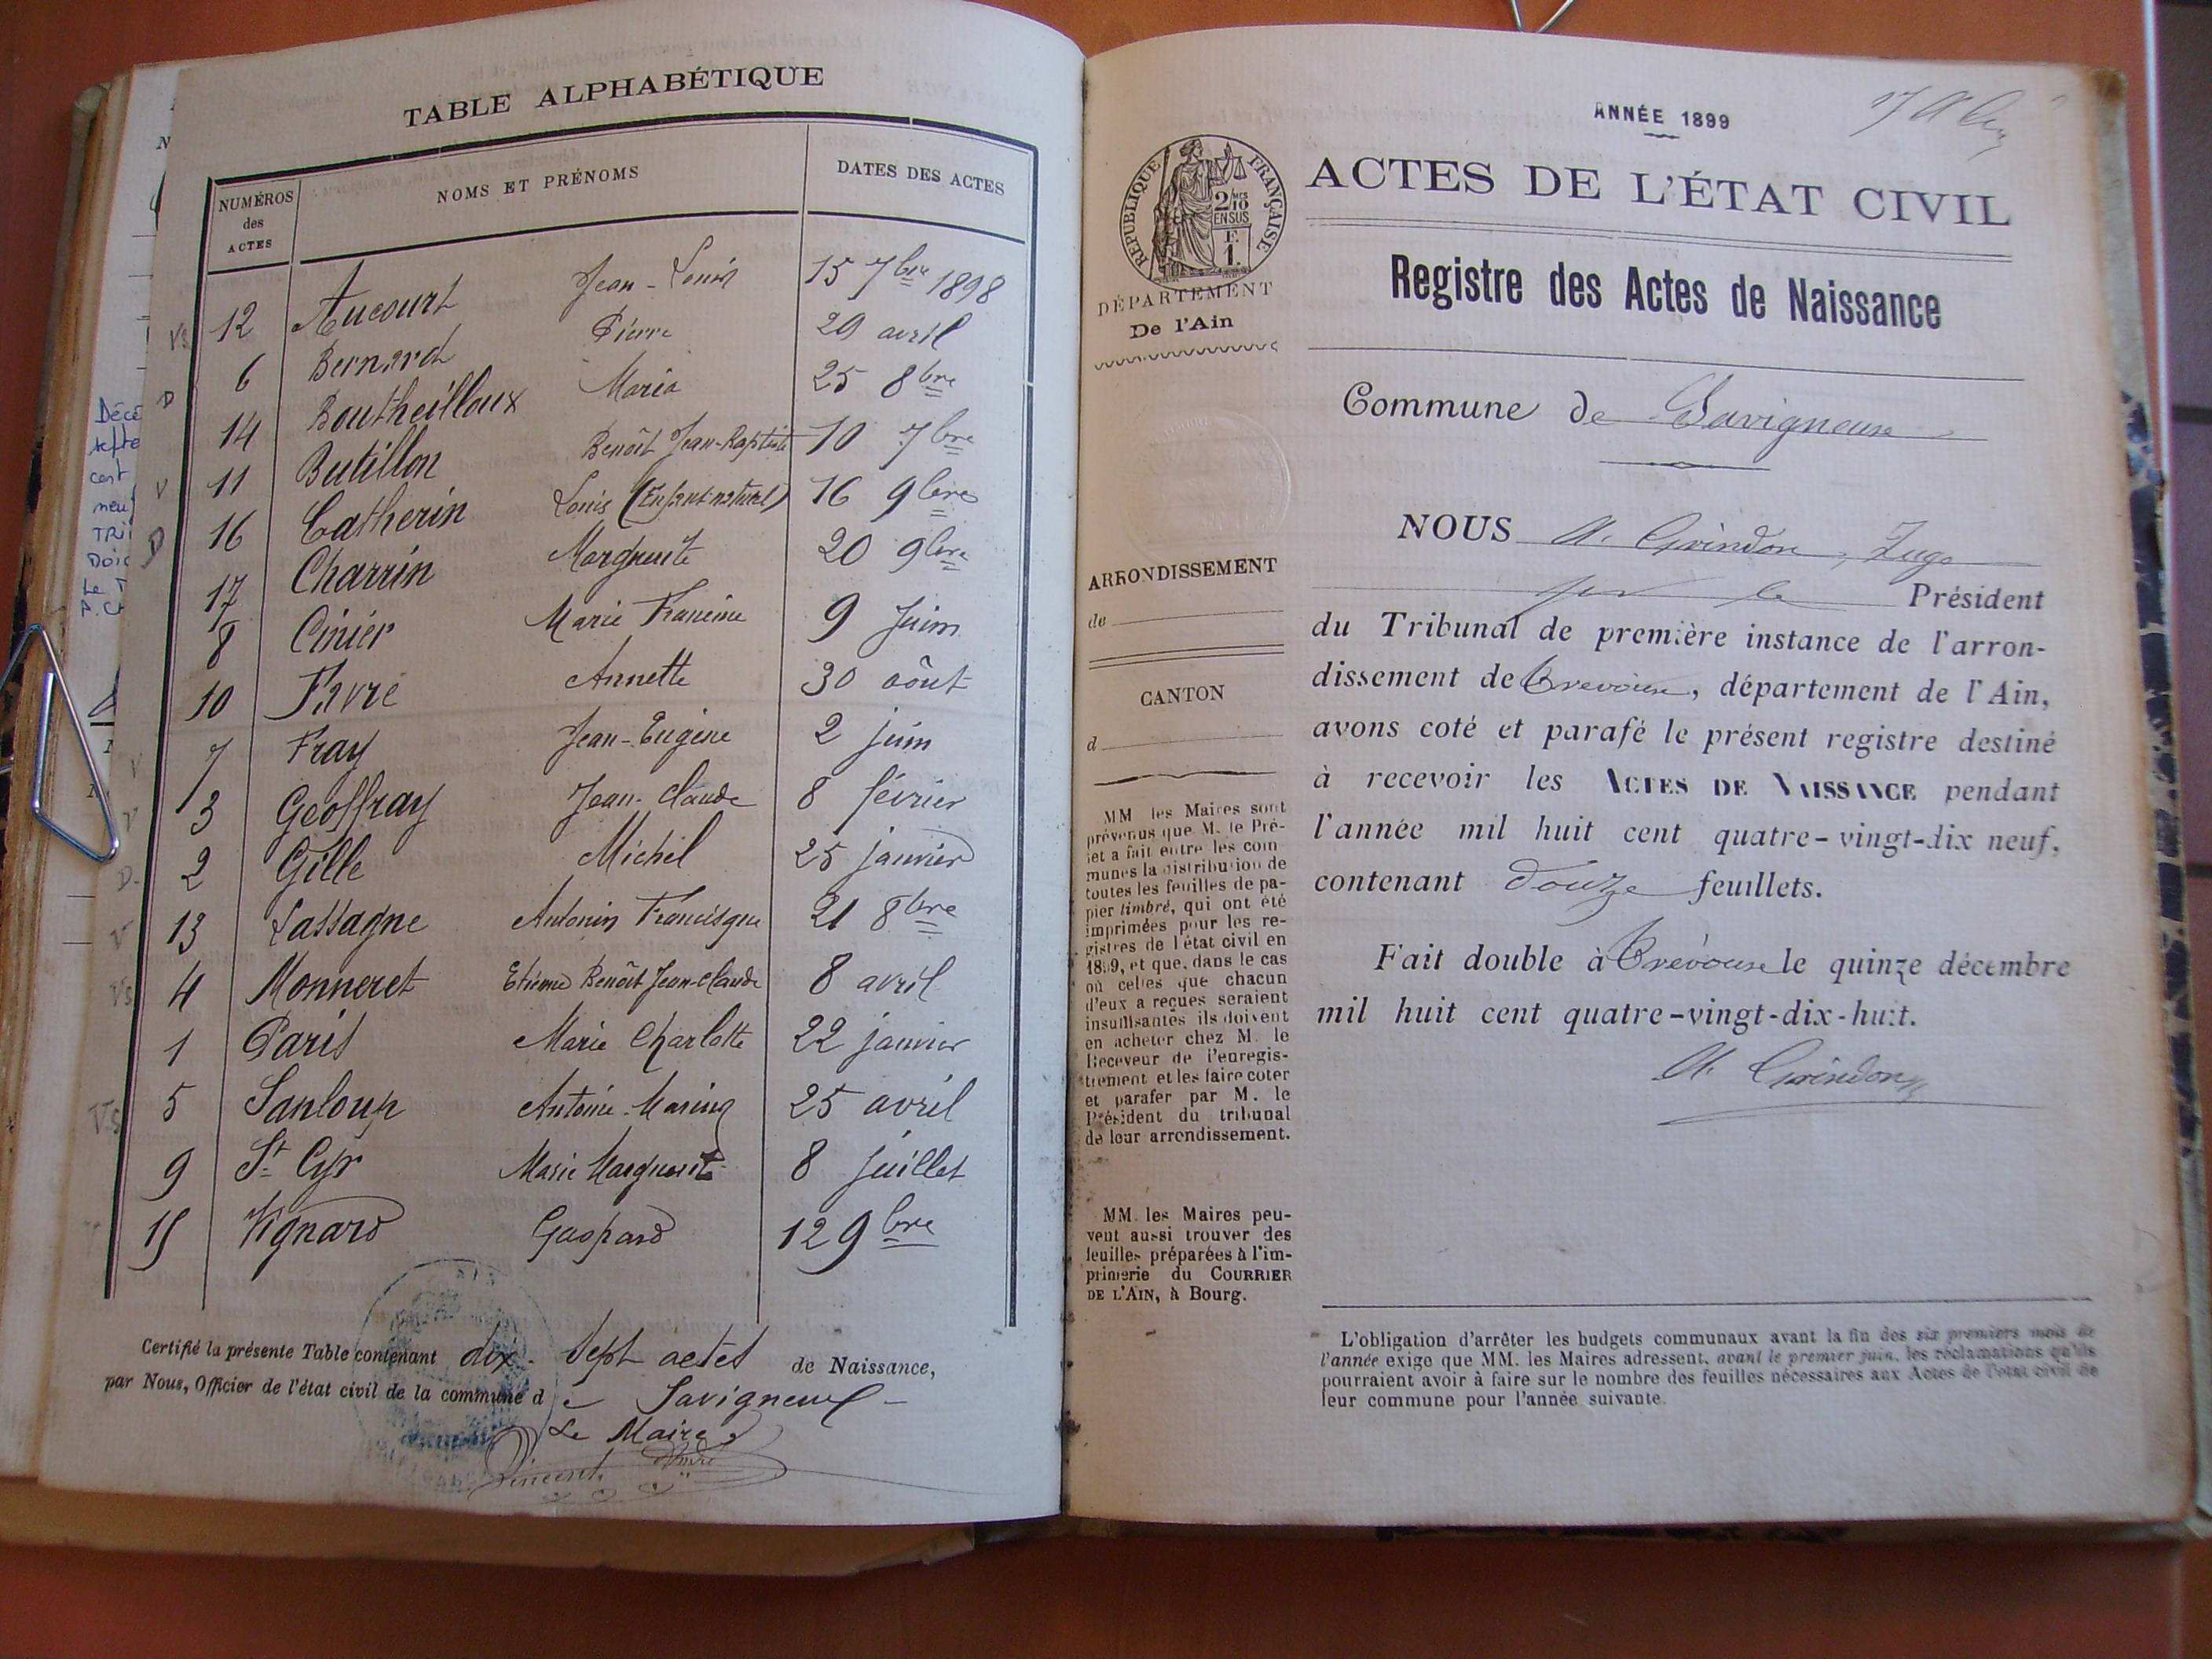 TABLE ALPHABÉTIQUE
NUMÉROS des ACTES
NOMS ET PRÉNOMS
DATES DES ACTES
12 Aucourt Jean-Louis 15 7bre 1898
6 Bernard Pierre 29 avril
14 Boutheilloux Maria 25 8bre
11 Butillon Benoît Jean-Baptiste 10 7bre
16 Catherin Louis (Enfant naturel) 16 9bre
17 Charrin Marguerite 20 9bre
8 Cinier Marie Francine 9 Juin
10 Favre Annette 30 aôut
7 Fray Jean-Eugène 2 juin
3 Geoffray Jean-Claude 8 février
2 Gille Michel 25 janvier
13 Lassagne Antonin Francisque 21 8bre
4 Monneret Etienne Benoît Jean-Claude 8 avril
1 Paris Marie Charlotte 22 janvier
5 Sanloup Antoine-Marius 25 avril
9 St Cyr Marie Marguerite 8 juillet
15 Vignard Gaspard 12 9bre
Certifié la présente Table contenant dix-sept actes de Naissance,
par Nous, Officier de l'état civil de la commune de Savigneux
Le Maire
Vincent André
Décé
septe
cent
neuf
TRI
DOIC
Le T
ANNÉE 1899
RÉPUBLIQUE FRANÇAISE
2/10 EN SUS
F. 1.
DÉPARTEMENT
De l'Ain
ARRONDISSEMENT
de
CANTON
d
MM les Maires sont
prévenus que M. le Pré-
fet a fait entre les com
munes la distribution de
toutes les feuilles de pa-
pier timbré, qui ont été
imprimées pour les re-
gistres de l'état civil en
1899, et que, dans le cas
où celles que chacun
d'eux a reçues seraient
insuffisantes ils doivent
en acheter chez M. le
Receveur de l'enregis-
trement et les faire coter
et parafer par M. le
Président du tribunal
de leur arrondissement.
MM. les Maires peu-
vent aussi trouver des
feuilles préparées à l'im-
primerie du COURRIER
DE L'AIN, à Bourg.
ACTES DE L'ÉTAT CIVIL
Registre des Actes de Naissance
Commune de Savigneux
NOUS A. Grindon, Juge
pr le Président
du Tribunal de première instance de l'arron-
dissement de Trévoux, département de l'Ain,
avons coté et parafé le présent registre destiné
à recevoir les ACTES DE NAISSANCE pendant
l'année mil huit cent quatre-vingt-dix neuf,
contenant douze feuillets.
Fait double à Trévoux le quinze décembre
mil huit cent quatre-vingt-dix-huit.
A. Grindon
L'obligation d'arrêter les budgets communaux avant la fin des six premiers mois de
l'année exige que MM. les Maires adressent, avant le premier juin, les réclamations qu'ils
pourraient avoir à faire sur le nombre des feuilles nécessaires aux Actes de l'état civil de
leur commune pour l'année suivante.